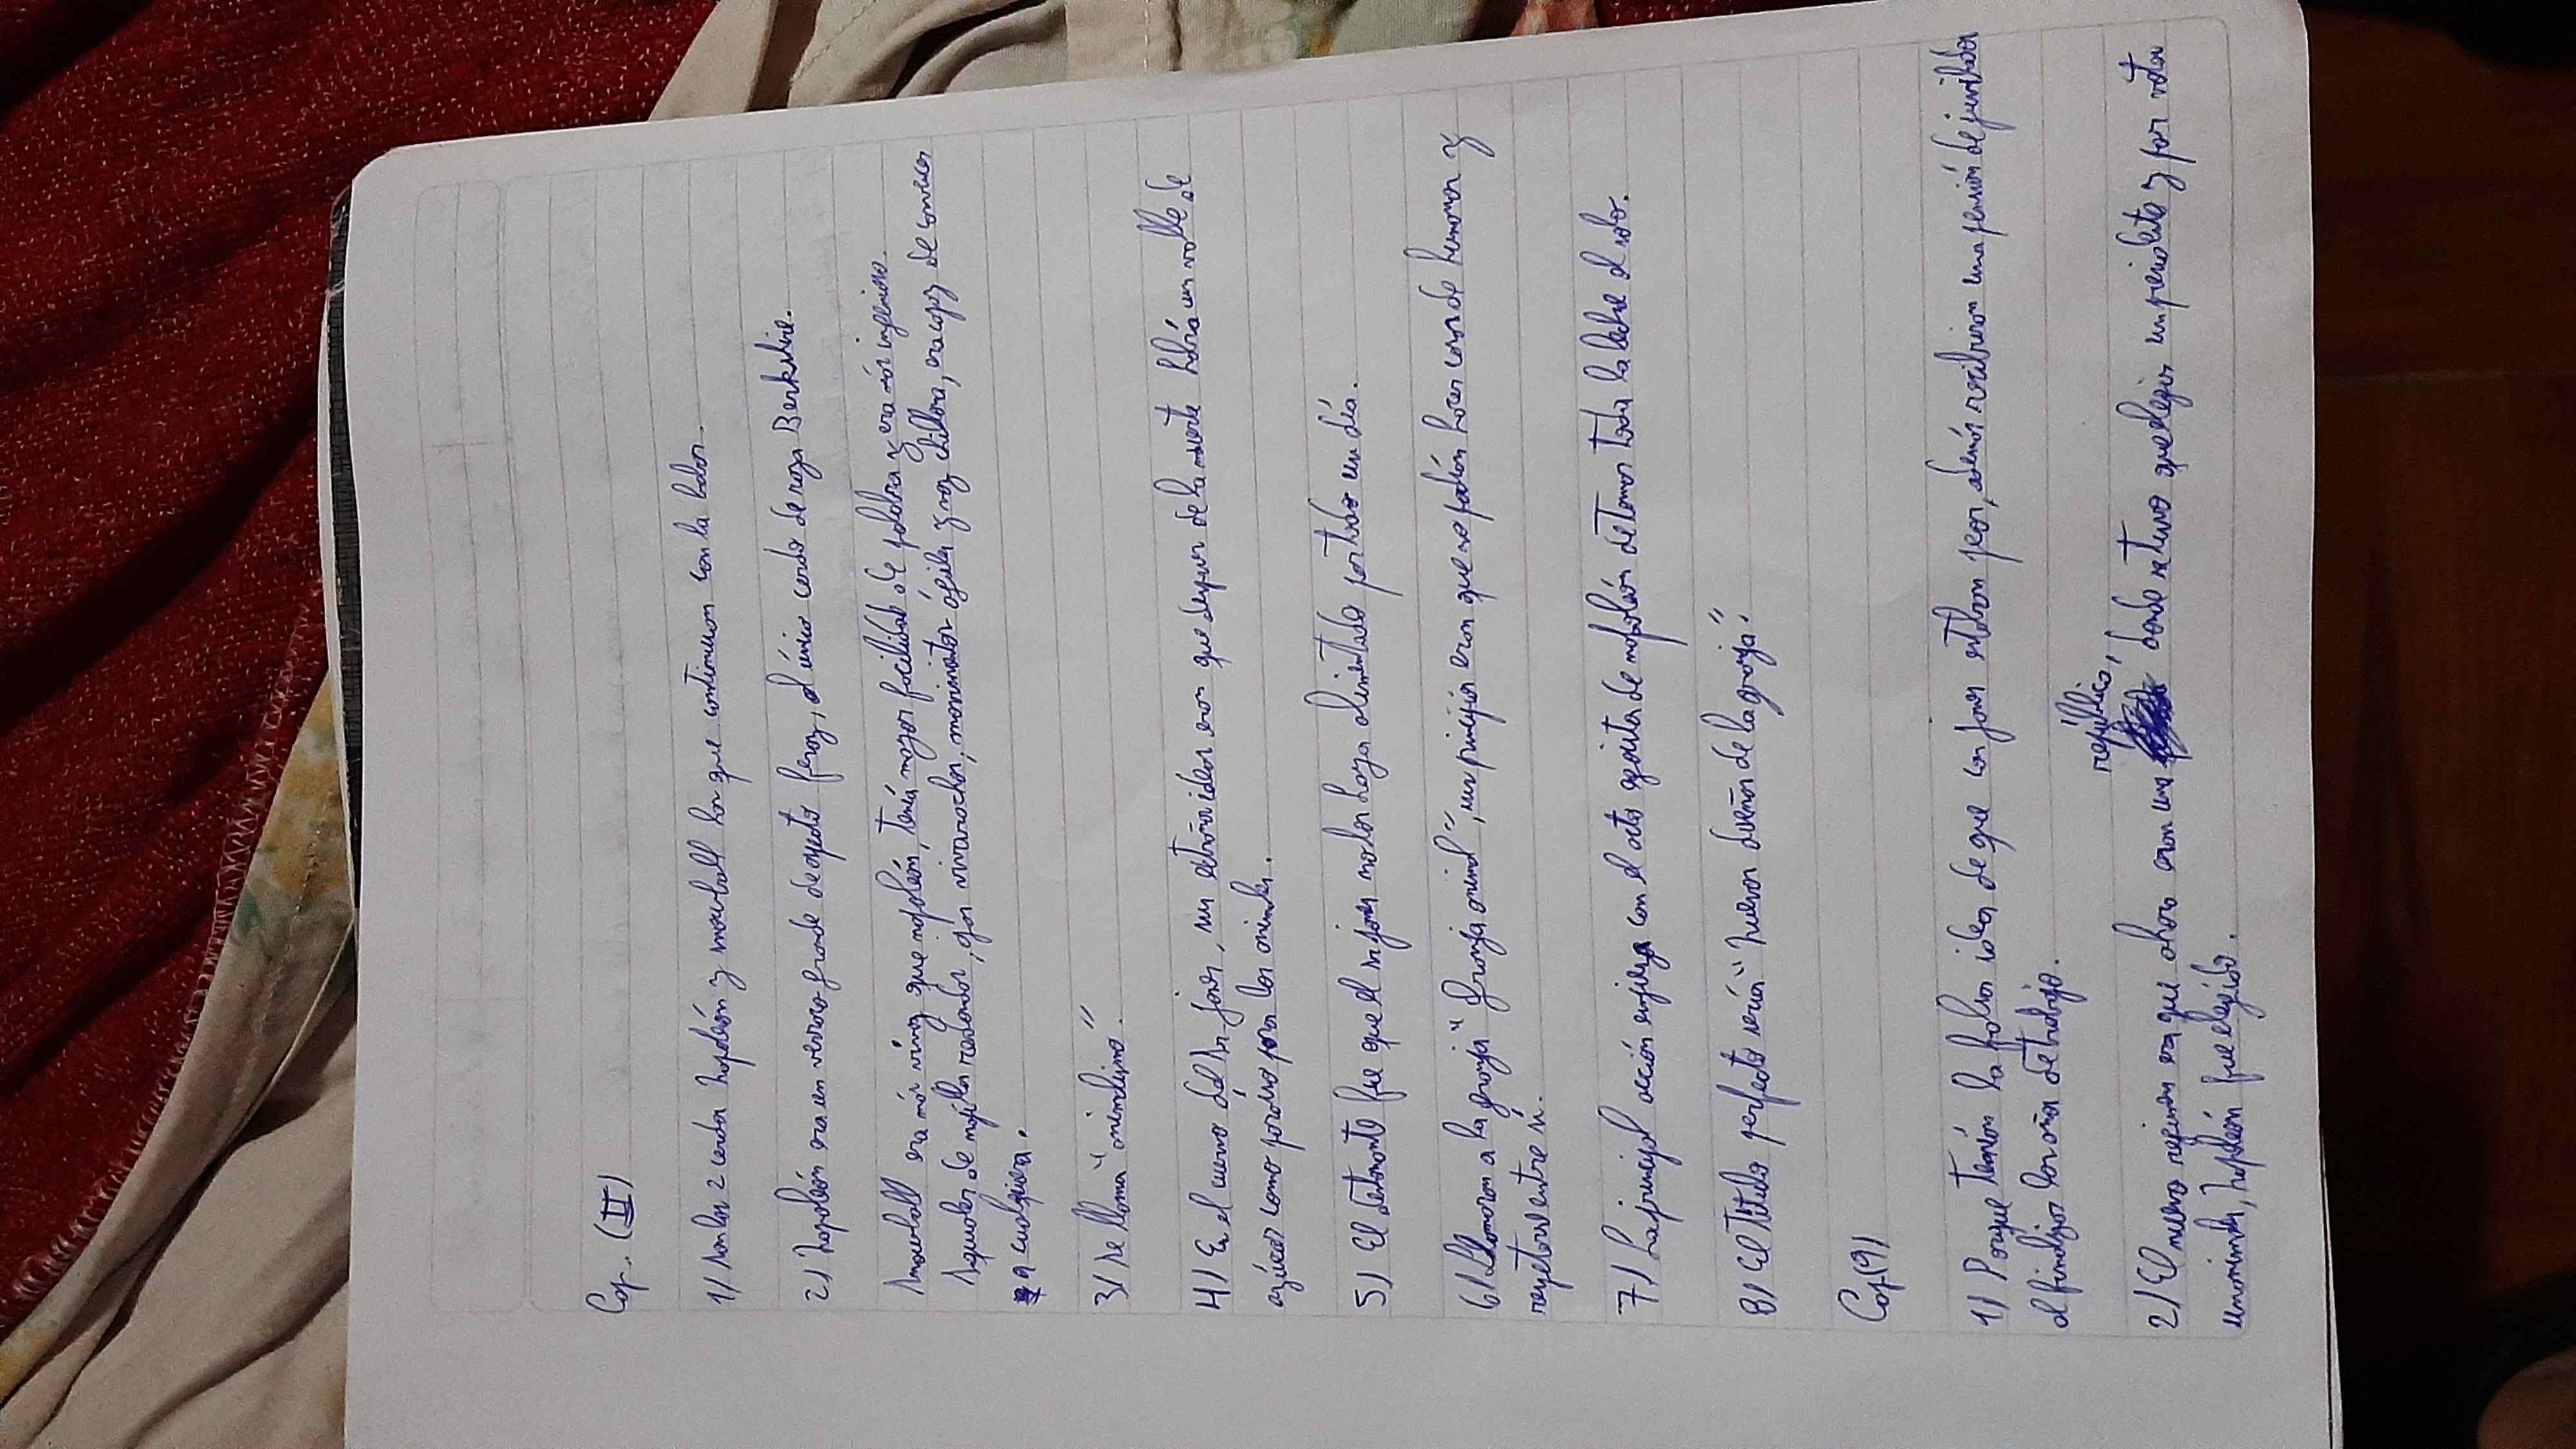 Cap. (II)
1) Son los 2 cerdos Napoleón y Snowball los que continuan con la labor.
2) Napoleón era un verraco grande de aspecto feroz, el único cerdo de raza Berkshire.
Snowball era más vivaz que napoleón, tenía mayor facilidad de palabra y era más ingenioso.
Squealer de mejillas redondas, ojos vivarachos, movimientos ágiles y voz chillona, era capaz de convencer
a cualquiera.
3) Se llama "animalismo".
4) Es el cuervo del Sr. Jones, sus ideas eran que despues de la muerte habría un valle de
azúcar como paraíso para los animales.
5) El detonante fue que el Sr jones no los haya alimentado por todo un día.
6) Llamaron a la granja "Granja animal", sus principios eran que no podían hacer cosas de humanos y
respetarse entre sí.
7) La principal acción injusta con el acto egoista de napoleón de tomar toda la leche el solo.
8) El titulo perfecto sería "Nuevos dueños de la granja".
Cap(9)
1) Porque tenían la falsa idea de que con jones estaban peor, además recibieron una pensión de jubilados
al finalizar los años de trabajo.
república,
2) El nuevo regimen era que ahora eran una donde se tuvo que elegir un presidente y por votos
unanimes, napoleón fue elegido.